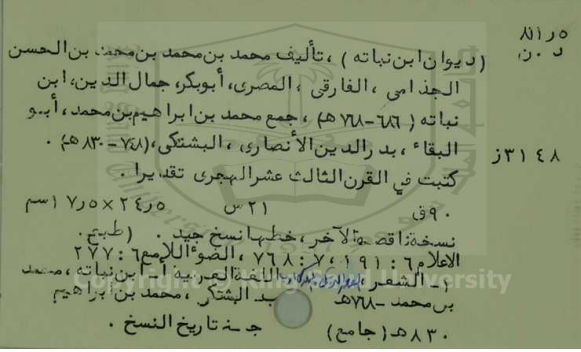 ٨١١ر٥
د . ن
( ديوان ابن نباته ) ، تأليف محمد بن محمد بن محمد بن الحسن
الجذامى ، الفارقى ، المصرى، أبوبكر، جمال الدين، ابن
نباته ( ٦٨٦-٧٦٨ هـ) ، جمع محمد بن ابراهيم بن محمد، أبو
البقاء ، بدر الدين الأنصارى ، البشتكى، (٧٤٨-٨٣٠ هـ) .
٣١٤٨ ز
كتبت في القرن الثالث عشر الهجرى تقديرا .
٩٠ق ٢١ س ٢٤ر٥ × ١٧ر٥ سم
نسخة ناقصة الآخر ، خطها نسخ جيد . ( طبع ) .
الاعلام ٦ : ١٩١ ، ٧ : ٢٦٨ ، الضوء اللامع ٦ : ٢٧٧
١- الشعر ، اللغة العربية أ- ابن نباته ، محمد
بن محمد -٧٦٨هـ ب- البشتكى ، محمد بن ابراهيم
٨٣٠هـ ( جامع ) جـ- تاريخ النسخ .
Copyright © King Saud University